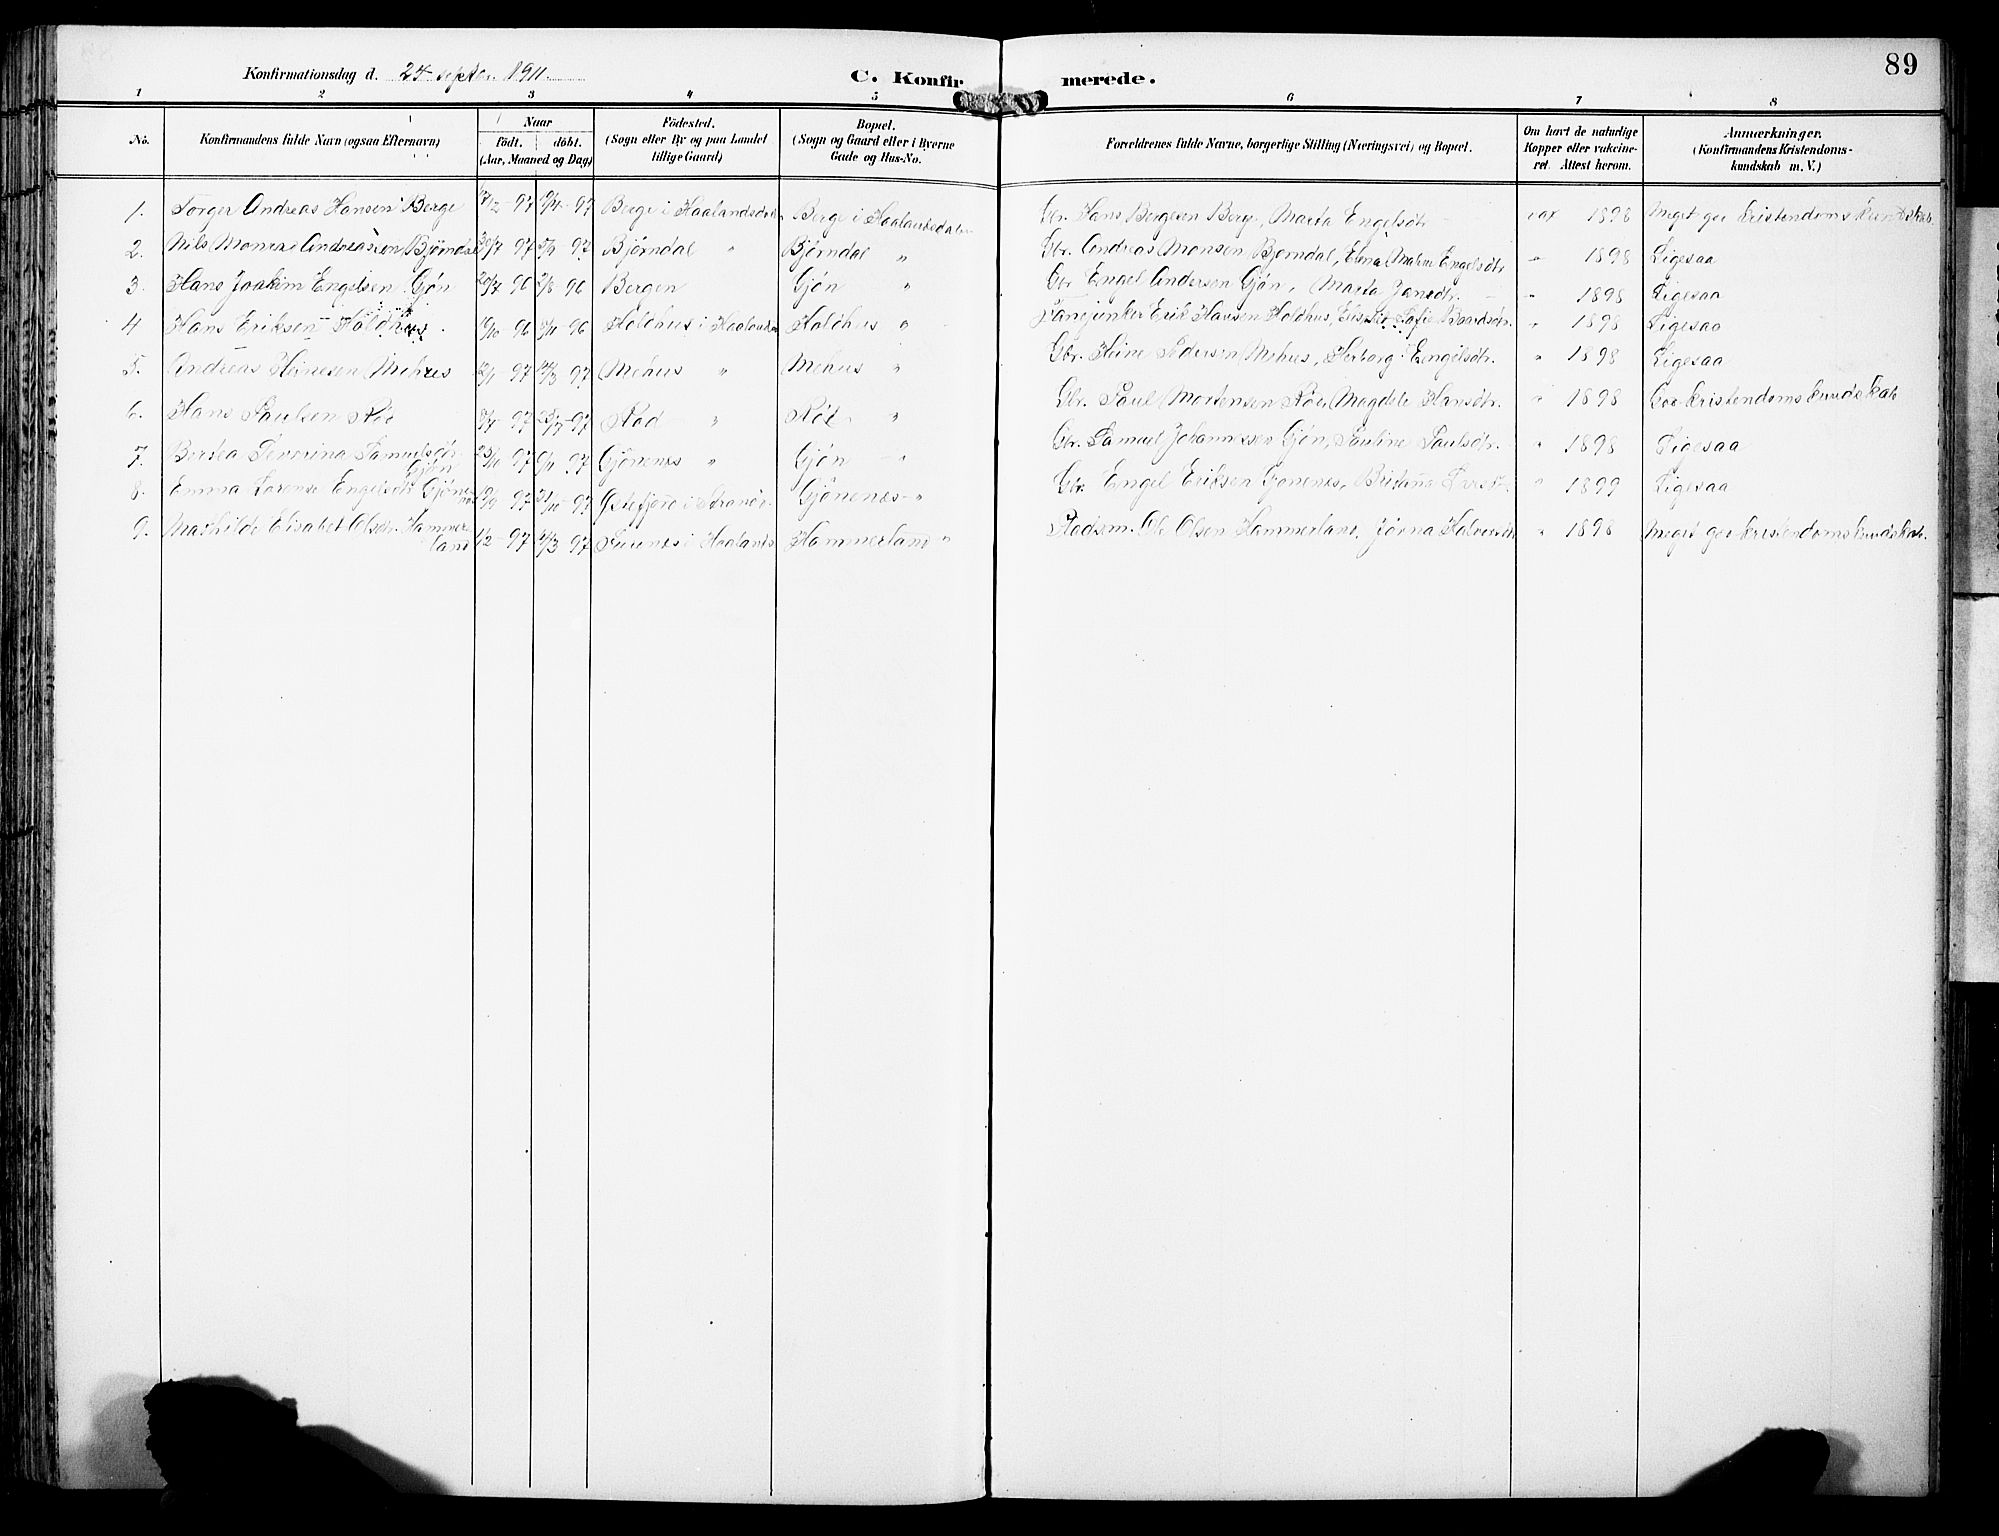 89
Konfirmationsdag d. 24 septbr. 1911. C. Konfirmerede.
1 2 3 4 5 6 7 8
No. Konfirmandens fulde Navn (ogsaa Efternavn) Naar født. døbt. (Aar, Maaned og Dag) Fødested. (Sogn eller By og paa Landet tillige Gaard) Bopæl. (Sogn og Gaard eller i Byerne Gade og Hus-No. Forældrenes fulde Navne, borgerlige Stilling (Næringsvei) og Bopæl. Om havt de naturlige Kopper eller vakcineret. Attest herom. Anmærkninger. (Konfirmandens Kristendomskundskab m. V.)
1. Torger Andreas Hansen Berge 17/2-97 97 Berge i Haalandsdalen Berge i Haalandsdalen Gbr. Hans Bergesen Berge, Marta Engelsdtr. vax 1898 Meget god Kristendomskundskab
2. Nils Monsen Andreassen Bjørndal 97 97 Bjørndal " Bjørndal " Gbr. Andreas Monsen Bjørndal, Engelsdtr. " 1898 Ligesaa
3. Hans Joakim Engelsen Gjøn 20/7 96 2/8 96 Bergen Gjøn " Gbr Engel Andersen Gjøn, Marta Jansdtr. " 1898 Ligesaa
4 Hans Eriksen Holdhus 96 96 Holdhus i Haalandsd. Holdhus " Fanejunker Erik Hansen Holdhus, Sofie Baardsdtr. " 1898 Ligesaa
5. Andreas Heinesen Mehus 97 97 Mehus " Mehus " Gbr. Heine Pedersen Mehus, Herborg Engelsdtr. " 1898 Ligesaa
6. Hans Paulsen Röd 97 97 Röd " Röd " Gbr. Paul Mortensen Röd, Magdele Hansdtr. " 1898 God kristendomskundskab
7. Bertea Severina Samuelsdtr. Gjøn 23/10 97 97 Gjønenes " Gjøn " Gbr. Samuel Johannessen Gjøn, Pauline Paulsdtr. " 1898 Ligesaa
8. Emma Lorense Engelsdtr Gjønenes 97 97 i Strandv. Gjønenes " Gbr. Engel Eriksen Gjønenes, Larsdtr " 1899 Ligesaa
9. Mathilde Elisabet Olsdtr. Hammerland 97 97 i Haalands. Hammerland " Pladsm. Ole Olsen Hammerland, Jørna Halvorsdtr " 1898 Meget god kristendomskundskab.